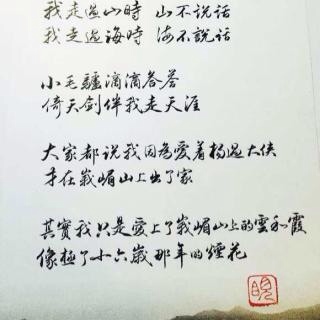 我走過山時 山不說話
我走過海時 海不說話
小毛驢滴滴答答
倚天剑伴我走天涯
大家都說我因為愛着楊过大侠
才在峨嵋山上出了家
其實我只是爱上了峨嵋山上的雲和霞
像極了十六歲那年的煙花